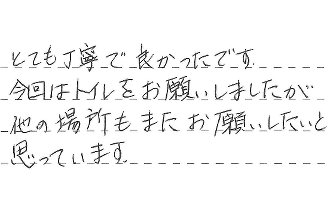 とても丁寧で良かったです。
今回はトイレをお願いしましたが
他の場所もまたお願いしたいと
思っています。